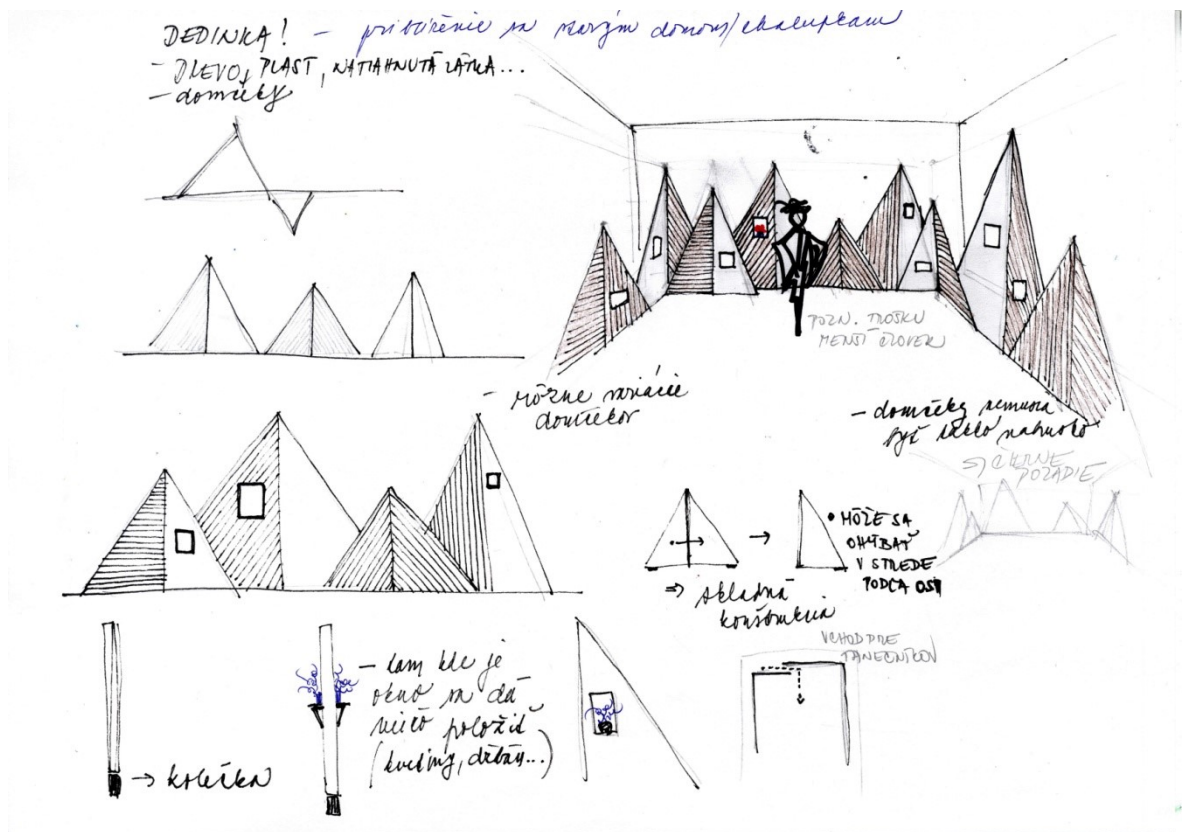 DEDINKA! – priblíženie sa starým domom/chalupkam
- DREVO, PLAST, NATIAHNUTÁ LÁTKA...
- domčeky
POZN. TROŠKU
MENŠÍ ČLOVEK
- rôzne variácie
domčekov
- domčeky nemusia
byť takto nahusto
=> ČIERNE
POZADIE
• MÔŽE SA
OHÝBAŤ
V STREDE
PODĽA OSI
=> skladná
konštrukcia
VCHOD PRE
TANEČNÍKOV
- tam kde je
okno sa dá
niečo položiť
(kvetiny, džbány...)
→ koliečka